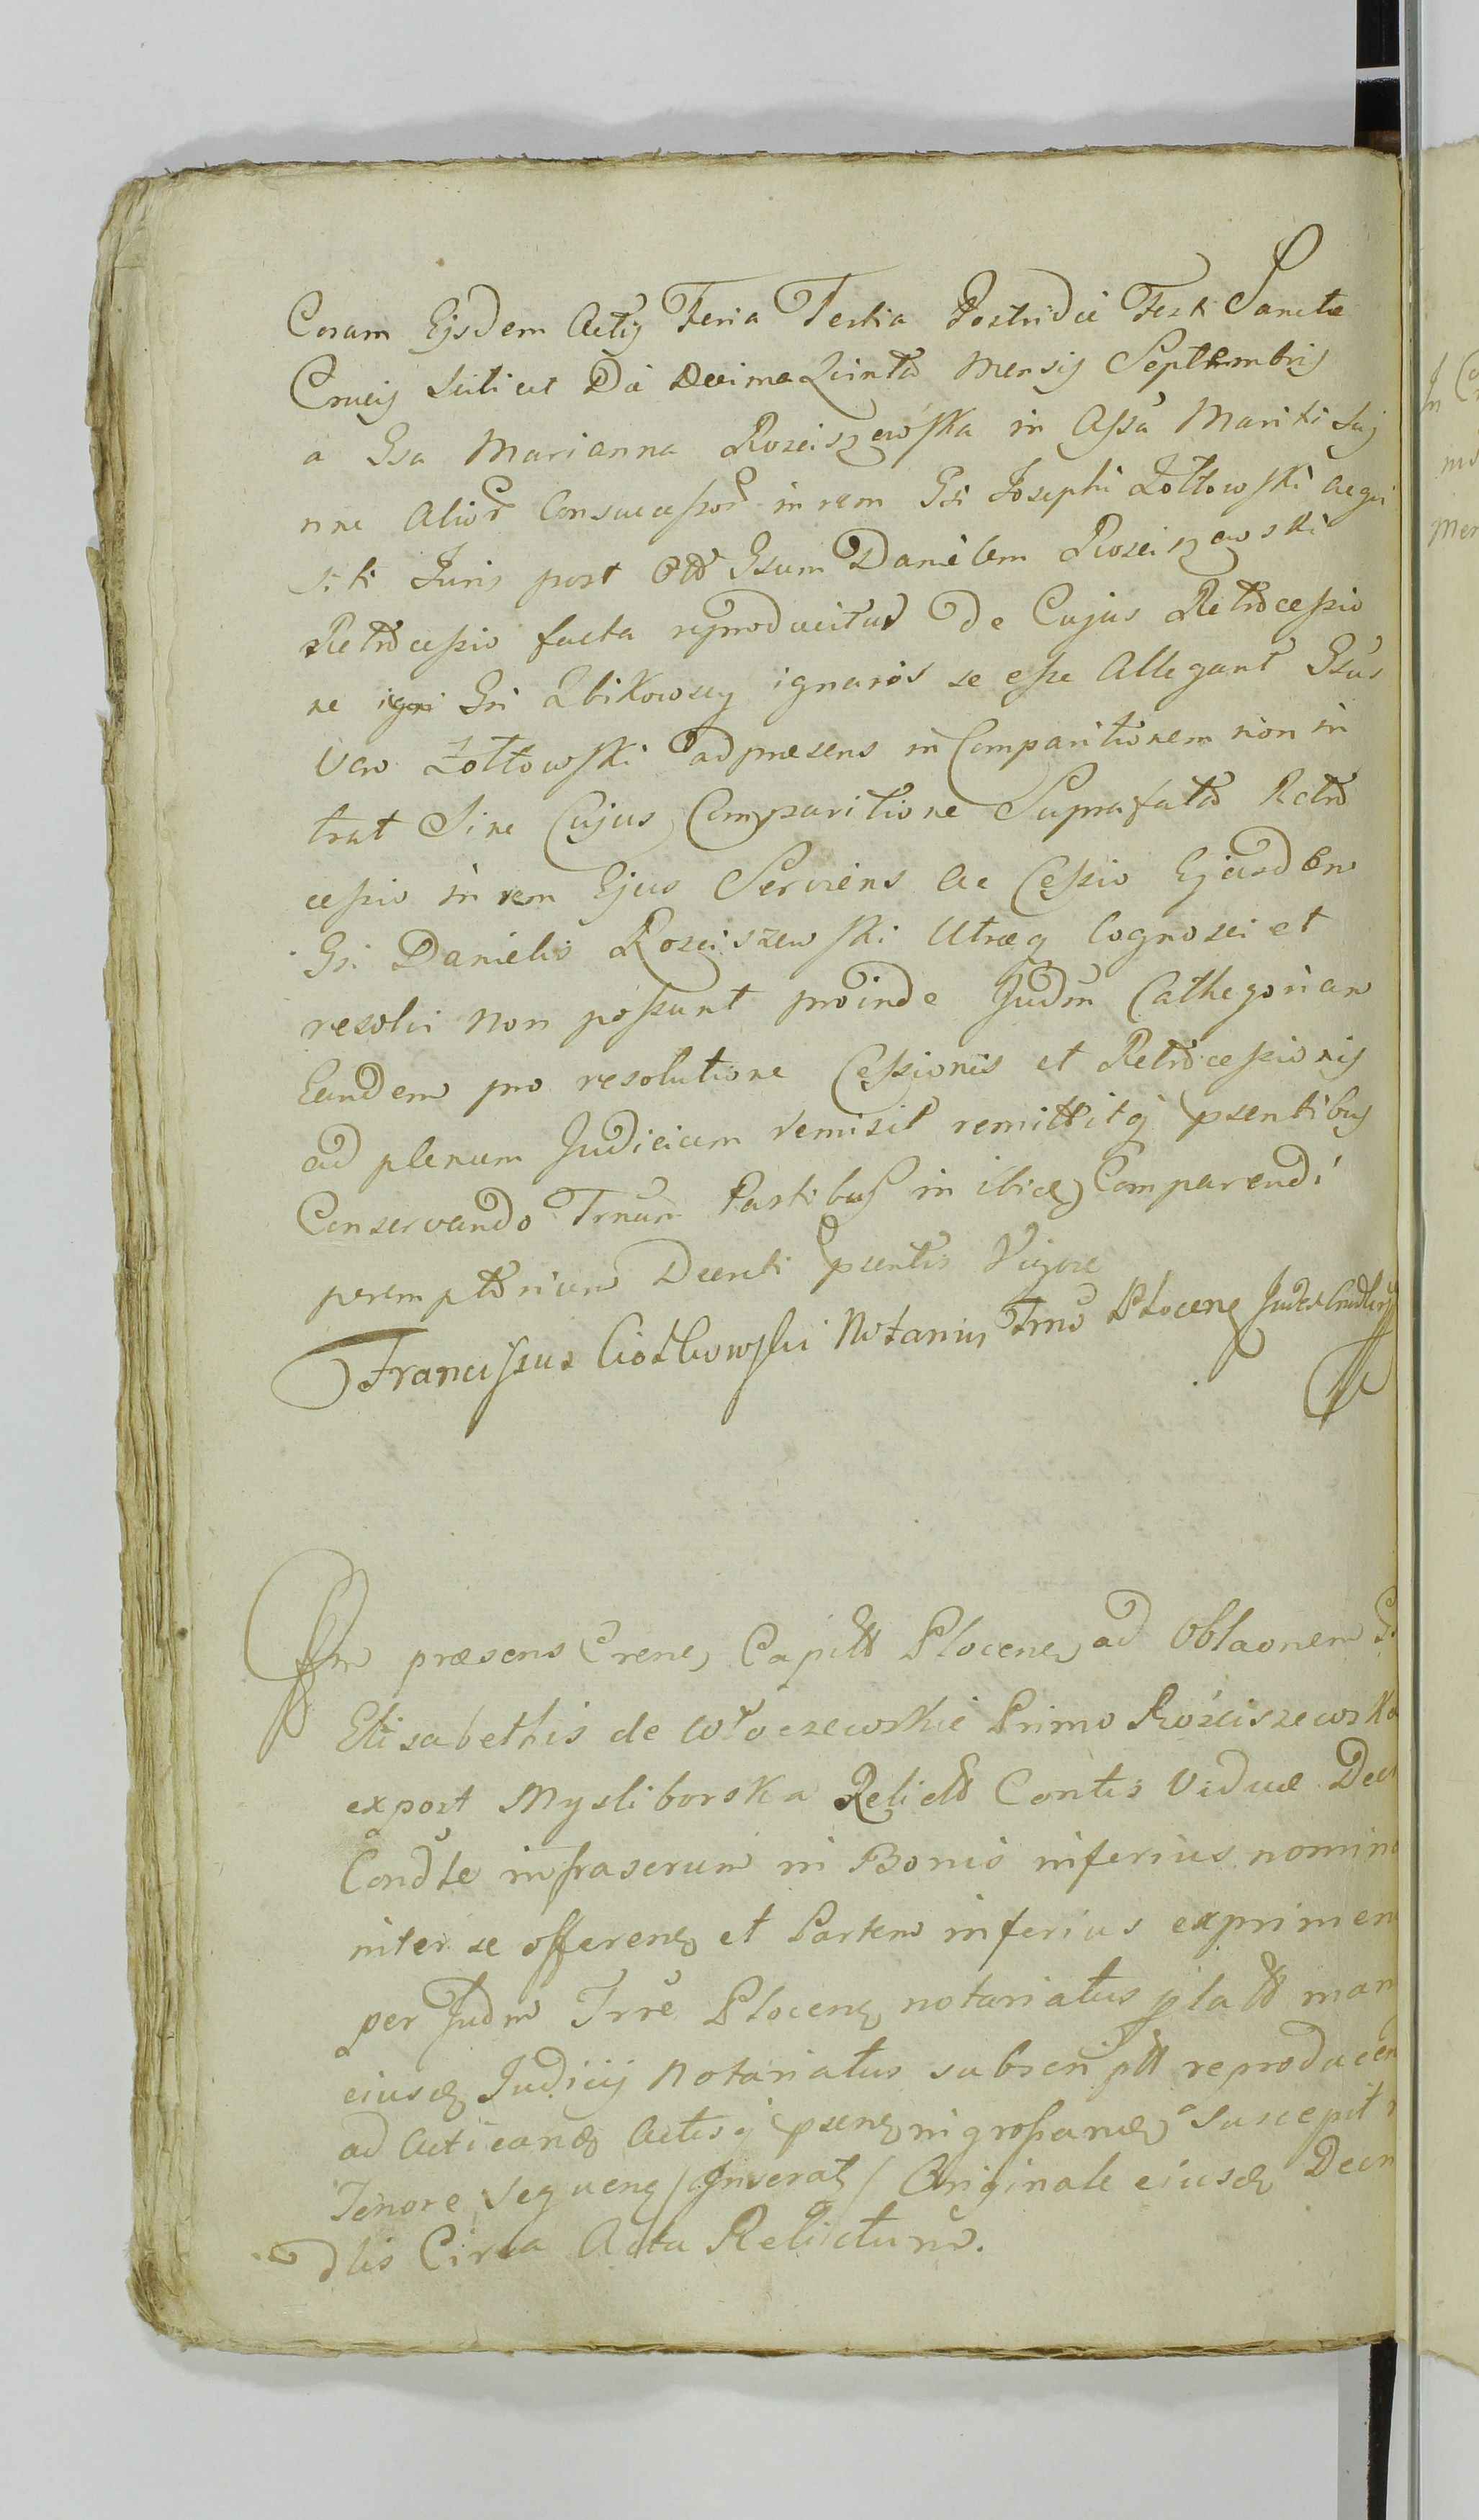 Coram Ejsdem Actis Feria Tertia Postridie Festi Sanctæ
Crucis Scilicet Die Decima Quinta Mensis Septembris
a Gsa Marianna Rosciszewska in Assā Mariti Suj
nne Alior̃ Consuccessor̃ in rem Gsi Josephi Zołtowski acqui
siti Juris post Gsum Danielem Rosciszewski
Retrocessio facta reproducitur De Cujus Retrocessio
ne Gsi Zbikowscy ignaros se esse Allegant Gsus
Vero Zołtowski ad præsens in Comparitionem non in
trat Sine Cujus Comparitione Suprafata Retro
cessio in rem Ejus Serviens ac Cessio Ejusdem
Gsi Danielis Rosciszewski Utræq Cognosci et
resolvi non possunt proinde Judm̃ Cathegoriam
Eandem pro resolutione Cessionis et Retrocessionis
ad plenum Judicium remisit remittitq psentibus
Conservando Trnum Partibus in ibid Comparendi
peremptorium Decreti psentis Vigore
Franciscus Ciołkowski Notarius Trrs Plocens
præsens Crens Capitt Plocens ad Oblaonem
Elisabethis de Włoczewskie Primo Rosciszewska
expost Mysliborska Relictæ Contis Viduæ Dec
Condte infrascrum in Bonis inferius nomina
inter se offerens et Partem inferius exprimen
per Judm Trre Plocens notariatus plati man
eiusd Judicij Notariatus subscriptt reproducen
ad Acticand Actisq psens ingrossand Suscepit
Tenore Sequens / Inserat / Originale eiusd Decr
dlis Circa Acta Relictum.